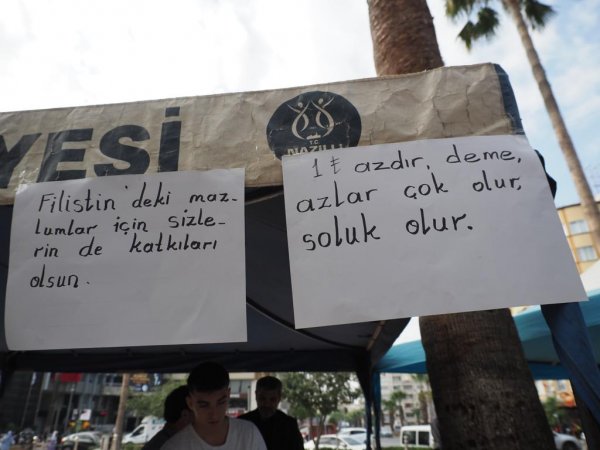 YESİ
T.C.
NAZİLLİ
Filistin'deki maz-
lumlar için sizle-
rin de katkıları
olsun.
1 ₺ azdır, deme,
azlar çok olur,
soluk olur.